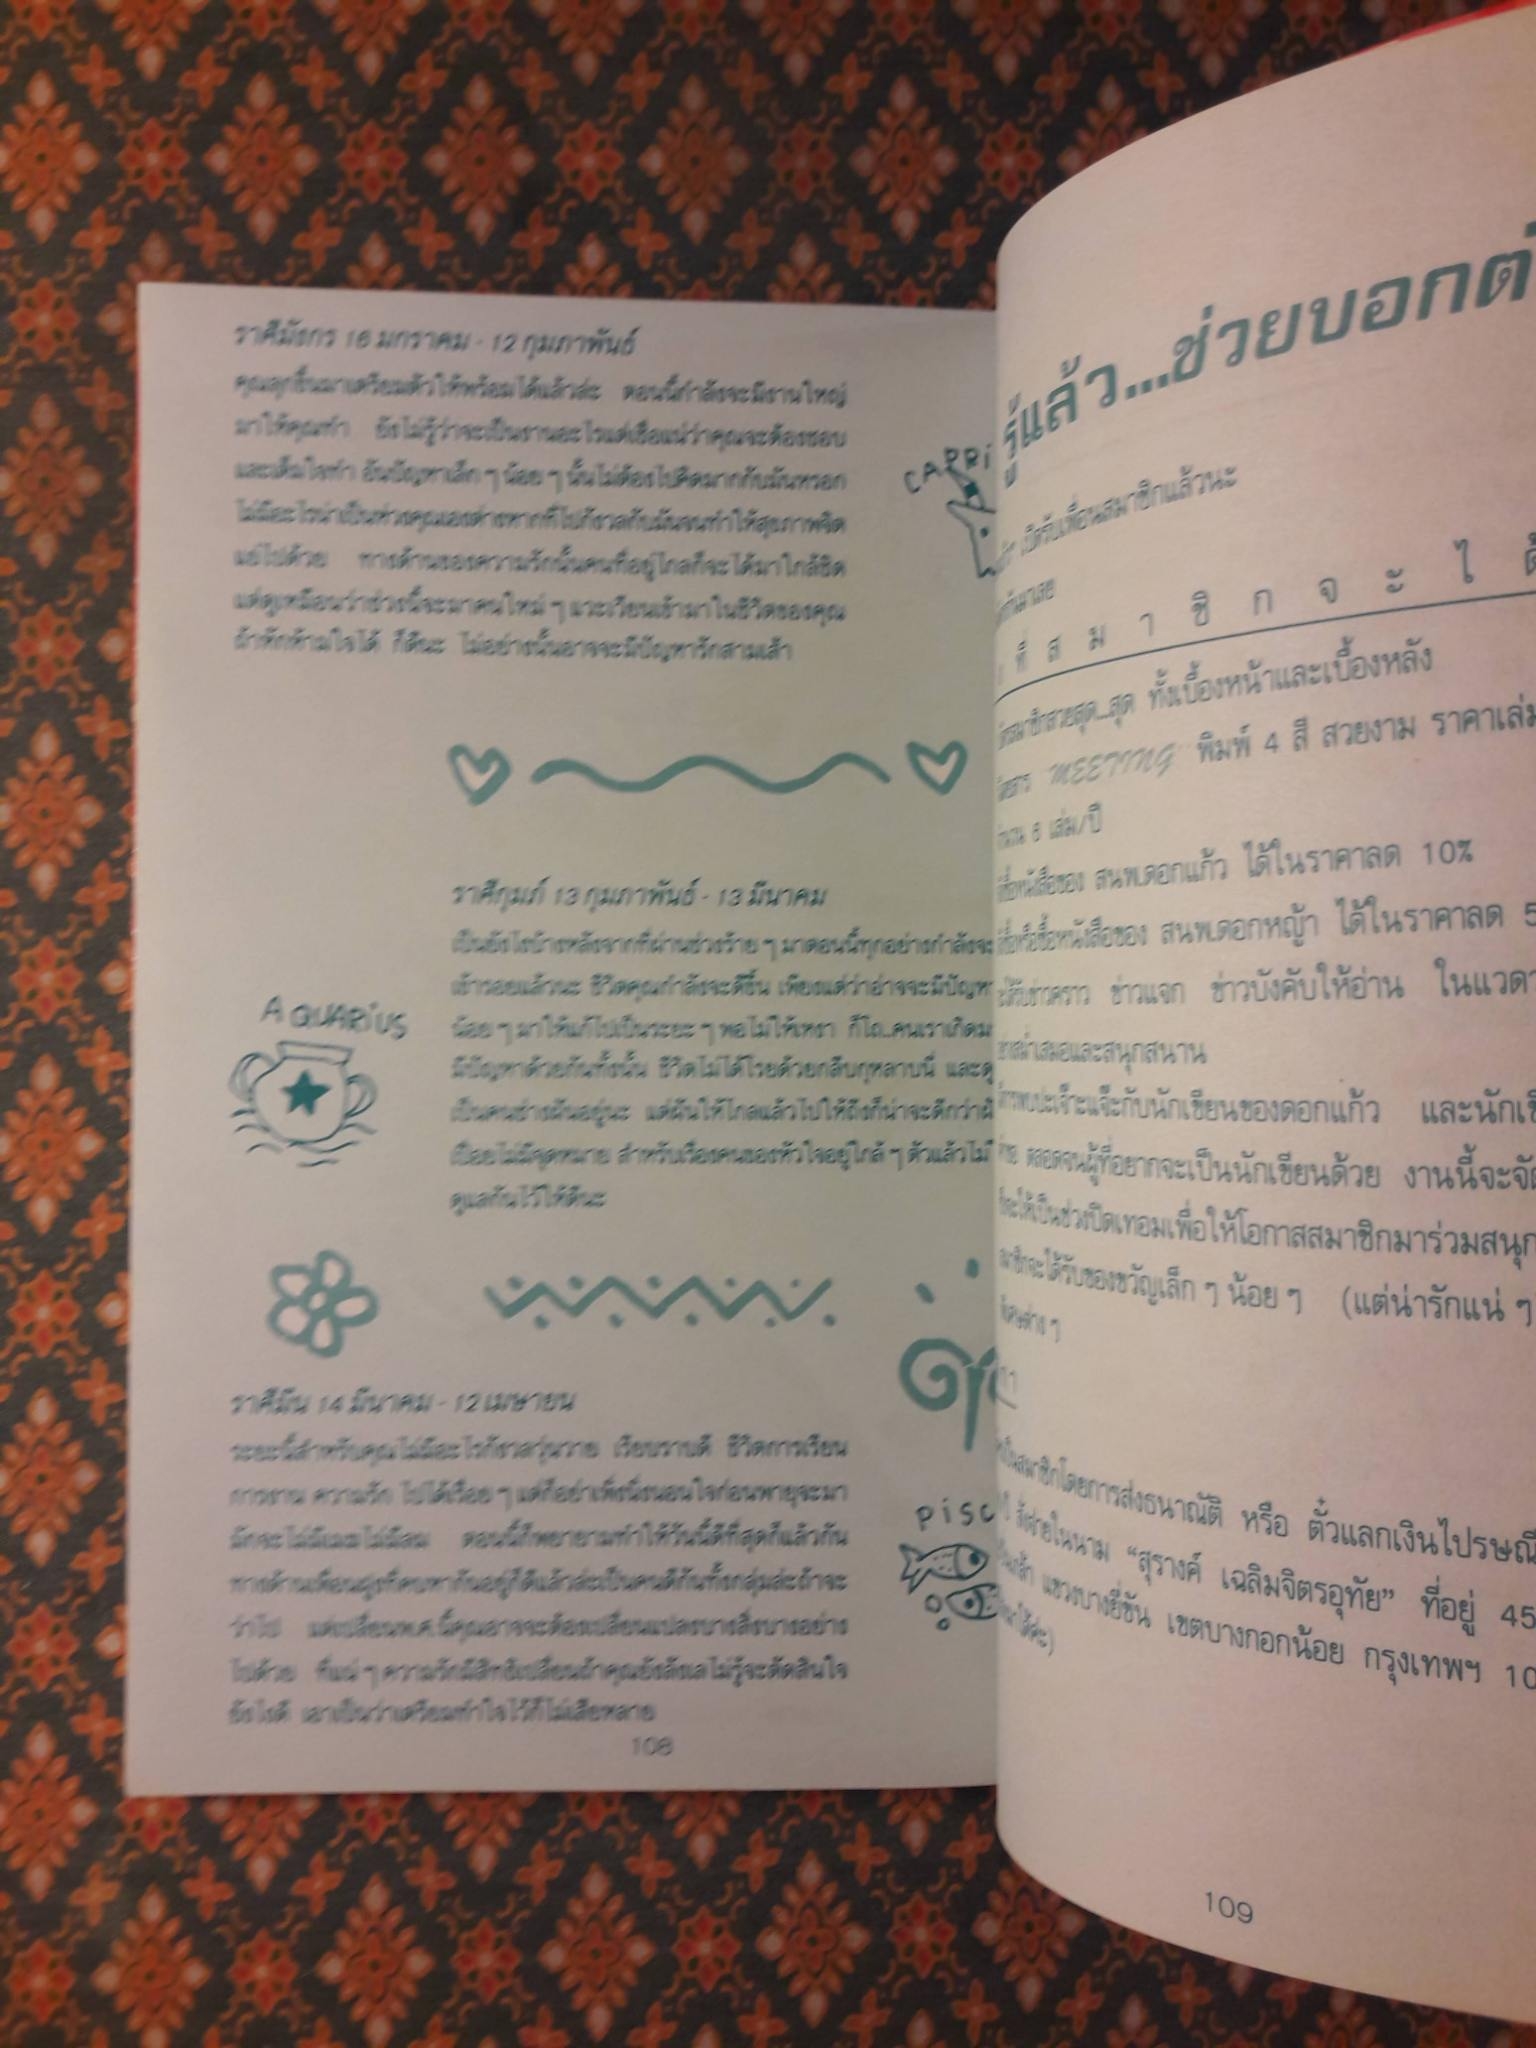 ราศีมังกร 16 มกราคม - 12 กุมภาพันธ์
คุณลุกขึ้นมาเตรียมตัวให้พร้อมได้แล้วล่ะ ตอนนี้กำลังจะมีงานใหญ่
มาให้คุณทำ ยังไม่รู้ว่าจะเป็นงานอะไรแต่เชื่อแน่ว่าคุณจะต้องชอบ
และเต็มใจทำ อันปัญหาเล็ก ๆ น้อย ๆ นั้นไม่ต้องไปคิดมากกับมันหรอก
ไม่มีอะไรน่าเป็นห่วงคุณเองต่างหากที่ไปกังวลกับมันจนทำให้สุขภาพจิต
แย่ไปด้วย ทางด้านของความรักนั้นคนที่อยู่ไกลก็จะได้มาใกล้ชิด
แต่ดูเหมือนว่าช่วงนี้จะมาคนใหม่ ๆ แวะเวียนเข้ามาในชีวิตของคุณ
ถ้าหักห้ามใจได้ ก็ดีนะ ไม่อย่างนั้นอาจจะมีปัญหารักสามเส้า
CAPRI
ราศีกุมภ์ 13 กุมภาพันธ์ - 13 มีนาคม
เป็นยังไงบ้างหลังจากที่ผ่านช่วงร้าย ๆ มาตอนนี้ทุกอย่างกำลังจะ
เข้ารอยแล้วนะ ชีวิตคุณกำลังจะดีขึ้น เพียงแต่ว่าอาจจะมีปัญหา
น้อย ๆ มาให้แก้ไปเป็นระยะ ๆ พอไม่ให้เหงา ก็โถ...คนเราเกิดมา
มีปัญหาด้วยกันทั้งนั้น ชีวิตไม่ได้โรยด้วยกลีบกุหลาบนี่ และดู
เป็นคนช่างฝันอยู่นะ แต่ฝันให้ไกลแล้วไปให้ถึงก็น่าจะดีกว่า
เปื่อยไม่มีจุดหมาย สำหรับเรื่องคนของหัวใจอยู่ใกล้ ๆ ตัวแล้ว
ดูแลกันไว้ให้ดีนะ
AQUARIUS
ราศีมีน 14 มีนาคม - 12 เมษายน
ระยะนี้สำหรับคุณไม่มีอะไรกังวลวุ่นวาย เรียบราบดี ชีวิตการเรียน
การงาน ความรัก ไปได้เรื่อย ๆ แต่ก็อย่าเพิ่งนิ่งนอนใจก่อนพายุจะมา
มักจะไม่มีเมฆไม่มีลม ตอนนี้ก็พยายามทำให้วันนี้ดีที่สุดก็แล้วกัน
ทางด้านเพื่อนฝูงที่คบหากันอยู่ก็ดีแล้วล่ะเป็นคนดีกันทั้งกลุ่มล่ะถ้าจะ
ว่าไป แต่เปลี่ยนพ.ศ.นี้คุณอาจจะต้องเปลี่ยนแปลงบางสิ่งบางอย่าง
ไปด้วย ที่แน่ ๆ ความรักมีสิทธิเปลี่ยนถ้าคุณยังลังเลไม่รู้จะตัดสินใจ
ยังไงดี เอาเป็นว่าเตรียมทำใจไว้ก็ไม่เสียหลาย
PISC
108
รู้แล้ว...ช่วยบอกต่
แล้ว เปิดรับเพื่อนสมาชิกแล้วนะ
ที่สมาชิกจะได้
สวยสุด...สุด ทั้งเบื้องหน้าและเบื้องหลัง
MEETING พิมพ์ 4 สี สวยงาม ราคาเล่ม
6 เล่ม/ปี
ซื้อหนังสือของ สนพ.ดอกแก้ว ได้ในราคาลด 10%
ซื้อหนังสือของ สนพ.ดอกหญ้า ได้ในราคาลด 5
ได้รับข่าวคราว ข่าวแจก ข่าวบังคับให้อ่าน ในแวดว
สม่ำเสมอและสนุกสนาน
พบปะเจ๊าะแจ๊ะกับนักเขียนของดอกแก้ว และนักเขี
ตลอดจนผู้ที่อยากจะเป็นนักเขียนด้วย งานนี้จะจัด
จะให้เป็นช่วงปิดเทอมเพื่อให้โอกาสสมาชิกมาร่วมสนุก
สมาชิกจะได้รับของขวัญเล็ก ๆ น้อย ๆ (แต่น่ารักแน่ ๆ
ต่าง ๆ
เป็นสมาชิกโดยการส่งธนาณัติ หรือ ตั๋วแลกเงินไปรษณี
ปี สั่งจ่ายในนาม “สุรางค์ เฉลิมจิตรอุทัย” ที่อยู่ 45
แขวงบางยี่ขัน เขตบางกอกน้อย กรุงเทพฯ 10
109